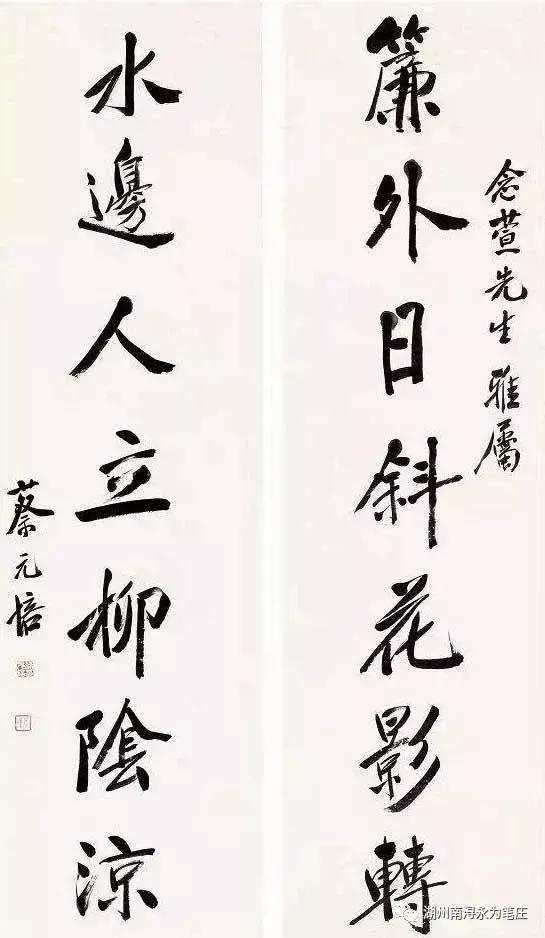 念萱先生雅属
簾外日斜花影轉
水邊人立柳陰涼
蔡元培
湖州南浔永为笔庄